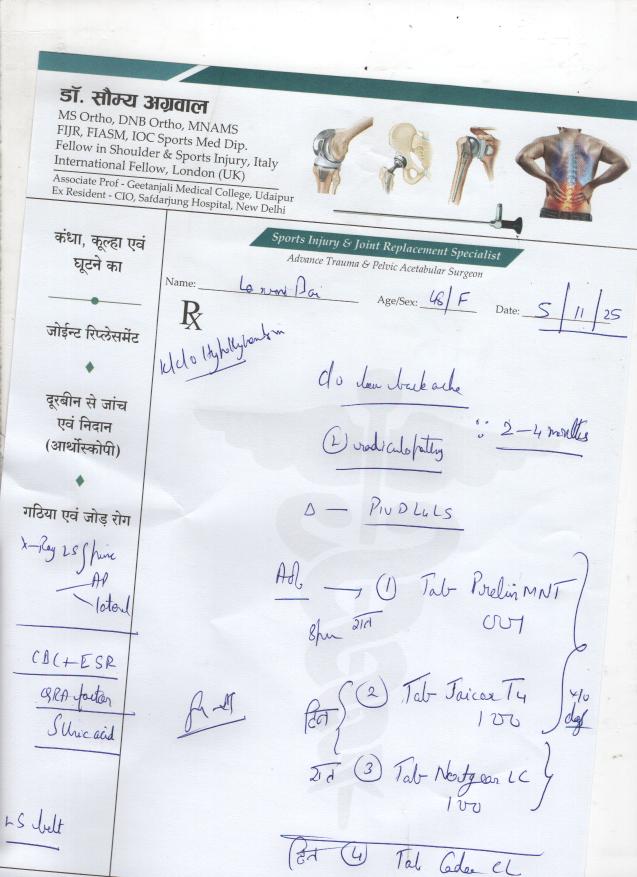 डॉ. सौम्य अग्रवाल
MS Ortho, DNB Ortho, MNAMS
FIJR, FIASM, IOC Sports Med Dip.
Fellow in Shoulder & Sports Injury, Italy
International Fellow, London (UK)
Associate Prof - Geetanjali Medical College, Udaipur
Ex Resident - CIO, Safdarjung Hospital, New Delhi
Sports Injury & Joint Replacement Specialist
Advance Trauma & Pelvic Acetabular Surgeon
Name: Bai Age/Sex: 48/F Date: 5/11/25
Rx
K/C/O
कंधा, कूल्हा एवं
घूटने का
जोईन्ट रिप्लेसमेंट
दूरबीन से जांच
एवं निदान
(आर्थोस्कोपी)
गठिया एवं जोड़ रोग
X-Ray LS Spine
AP
lateral
CBC + ESR
RA factor
S Uric acid
LS belt
c/o low backache
(L) radiculopathy 2-4 months
Δ - PIVD L4L5
Adv → ① Tab MNT
8pm रात 001
दिन ② Tab T4
100
रात ③ Tab LC
100
दिन ④ Tab CL